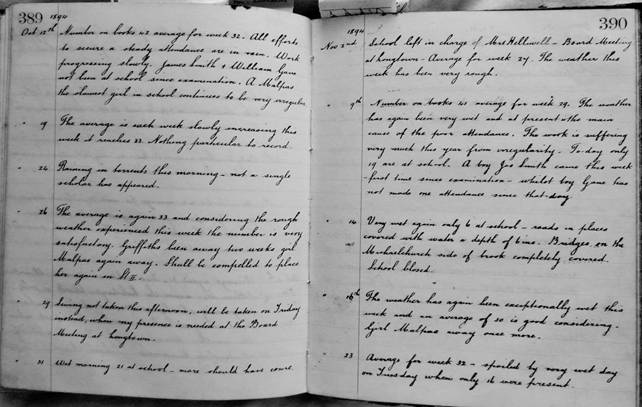 389
1894
Oct 12th Number on books 42 average for week 32. All efforts
to secure a steady attendance are in vain. Work
progressing slowly. James Smith & William Gane
not been at school since examination. A Malpas
the slowest girl in school continues to be very irregular
" 19 The average is each week slowly increasing this
week it reaches 33. Nothing particular to record.
" 24 Raining in torrents this morning - not a single
scholar has appeared.
" 26 The average is again 33 and considering the rough
weather experienced this week the number is very
satisfactory. Griffiths been away two weeks girl
Malpas again away. Shall be compelled to place
her again in St II.
" 29 Sewing not taken this afternoon, will be taken on Friday
instead, when my presence is needed at the Board
Meeting at Longtown.
" 31 Wet morning 21 at school - more should have come.
390
1894
Nov 2nd School left in charge of Mrs Helliwell - Board Meeting
at Longtown - Average for week 27. The weather this
week has been very rough.
" 9th Number on books 41 average for week 29. The weather
has again been very wet and at present is the main
cause of the poor attendance. The work is suffering
very much this year from irregularity. To-day only
19 are at school. A boy Jas Smith came this week
first time since examination - whilst boy Gane has
not made one attendance since that day
" 14 Very wet again only 6 at school - roads in places
covered with water a depth of 6 ins. Bridges on the
Michaelchurch side of brook completely covered.
School closed.
" 16th The weather has again been exceptionally wet this
week and an average of 20 is good considering.
Girl Malpas away once more.
" 23 Average for week 32 - spoiled by very wet day
on Tuesday when only 16 were present.